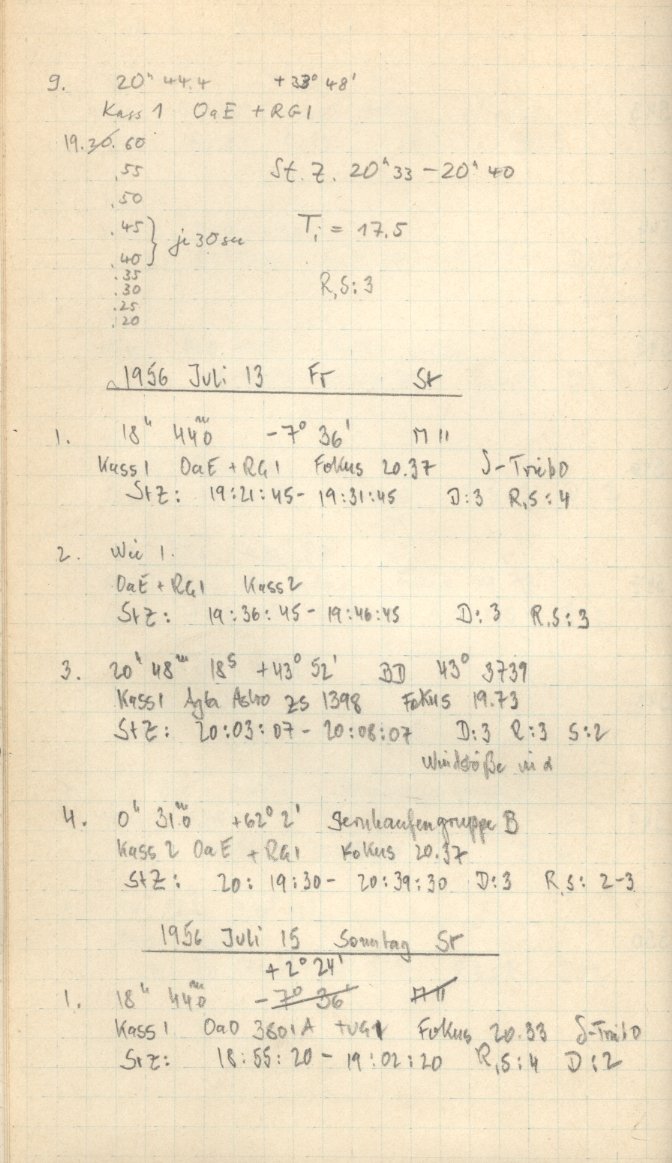 9. 20ʰ 44.4 +33° 48'
Kass 1 OaE + RG1
19.30.60
.55 St. Z. 20ʰ33 – 20ʰ40
.50
.45 } je 30 sec Tᵢ = 17.5
.40
.35
.30 R,S:3
.25
.20
1956 Juli 13 Fr St
1. 18ʰ 44ᵐ0 -7° 36' M 11
Kass 1 OaE + RG1 Fokus 20.37 δ-Trieb 0
StZ: 19:21:45 - 19:31:45 D:3 R,S:4
2. Wie 1.
OaE + RG1 Kass 2
StZ: 19:36:45 - 19:46:45 D:3 R,S:3
3. 20ʰ 48ᵐ 18ˢ +43° 52' BD 43° 3739
Kass 1 Agfa Astro ZS 1398 Fokus 19.73
StZ: 20:03:07 - 20:08:07 D:3 R:3 S:2
Windstöße in α
4. 0ʰ 31ᵐ0 +62° 2' Sternhaufengruppe B
Kass 2 OaE + RG1 Fokus 20.37
StZ: 20:19:30 - 20:39:30 D:3 R,S: 2-3
1956 Juli 15 Sonntag St
+2° 24'
1. 18ʰ 44ᵐ0 -7° 36' M 11
Kass 1 OaO 3801A + UG1 Fokus 20.33 δ-Trieb 0
StZ: 18:55:20 - 19:02:20 R,S:4 D:2